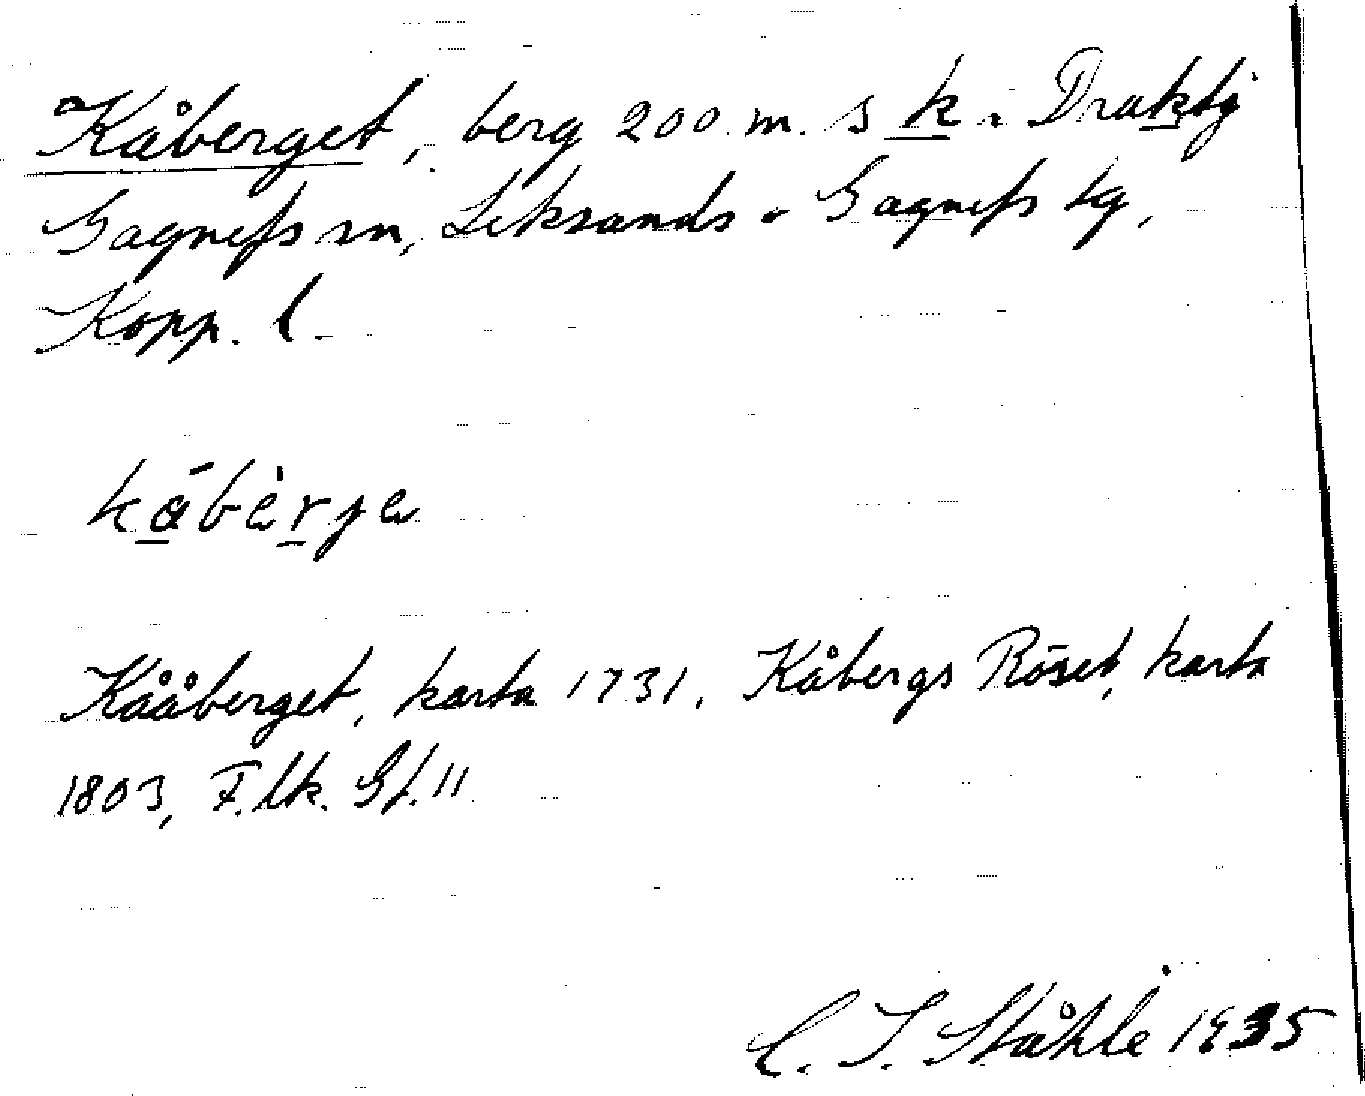 Kåberget, berg 200 m. s k. Draktj
Gagnefs sn, Leksands o Gagnefs tg,
Kopp. l.
kåbèrje
Kååberget, karta 1731, Kåbergs Röset, karta
1803, F. lk. Gf. 11
C. I. Ståhle 1935